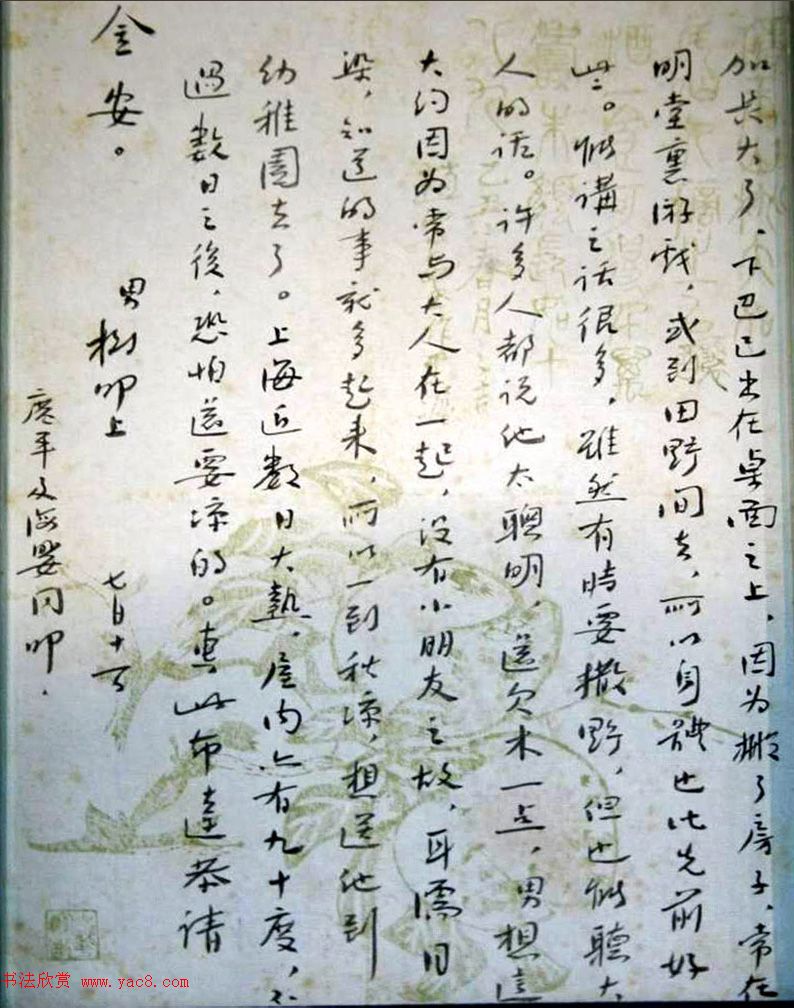 加長大了，下巴已出在桌面之上，因为搬了房子，常在
明堂裏游戏，或到田野间去，所以身體也比先前好
些。能講之话很多，雖然有時要撒野，但也能聽大
人的话。许多人都说他太聰明，還欠木一点，男想這
大约因为常与大人在一起，没有小朋友之故，耳濡目
染，知道的事就多起来，所以一到秋凉，想送他到
幼稚園去了。上海近数日大熱，屋内亦有九十度，不
過数日之後，恐怕還要凉的。專此布達恭请
金安。
男樹叩上
七月十二日
廣平及海嬰同叩．
书法欣赏 www.yac8.com